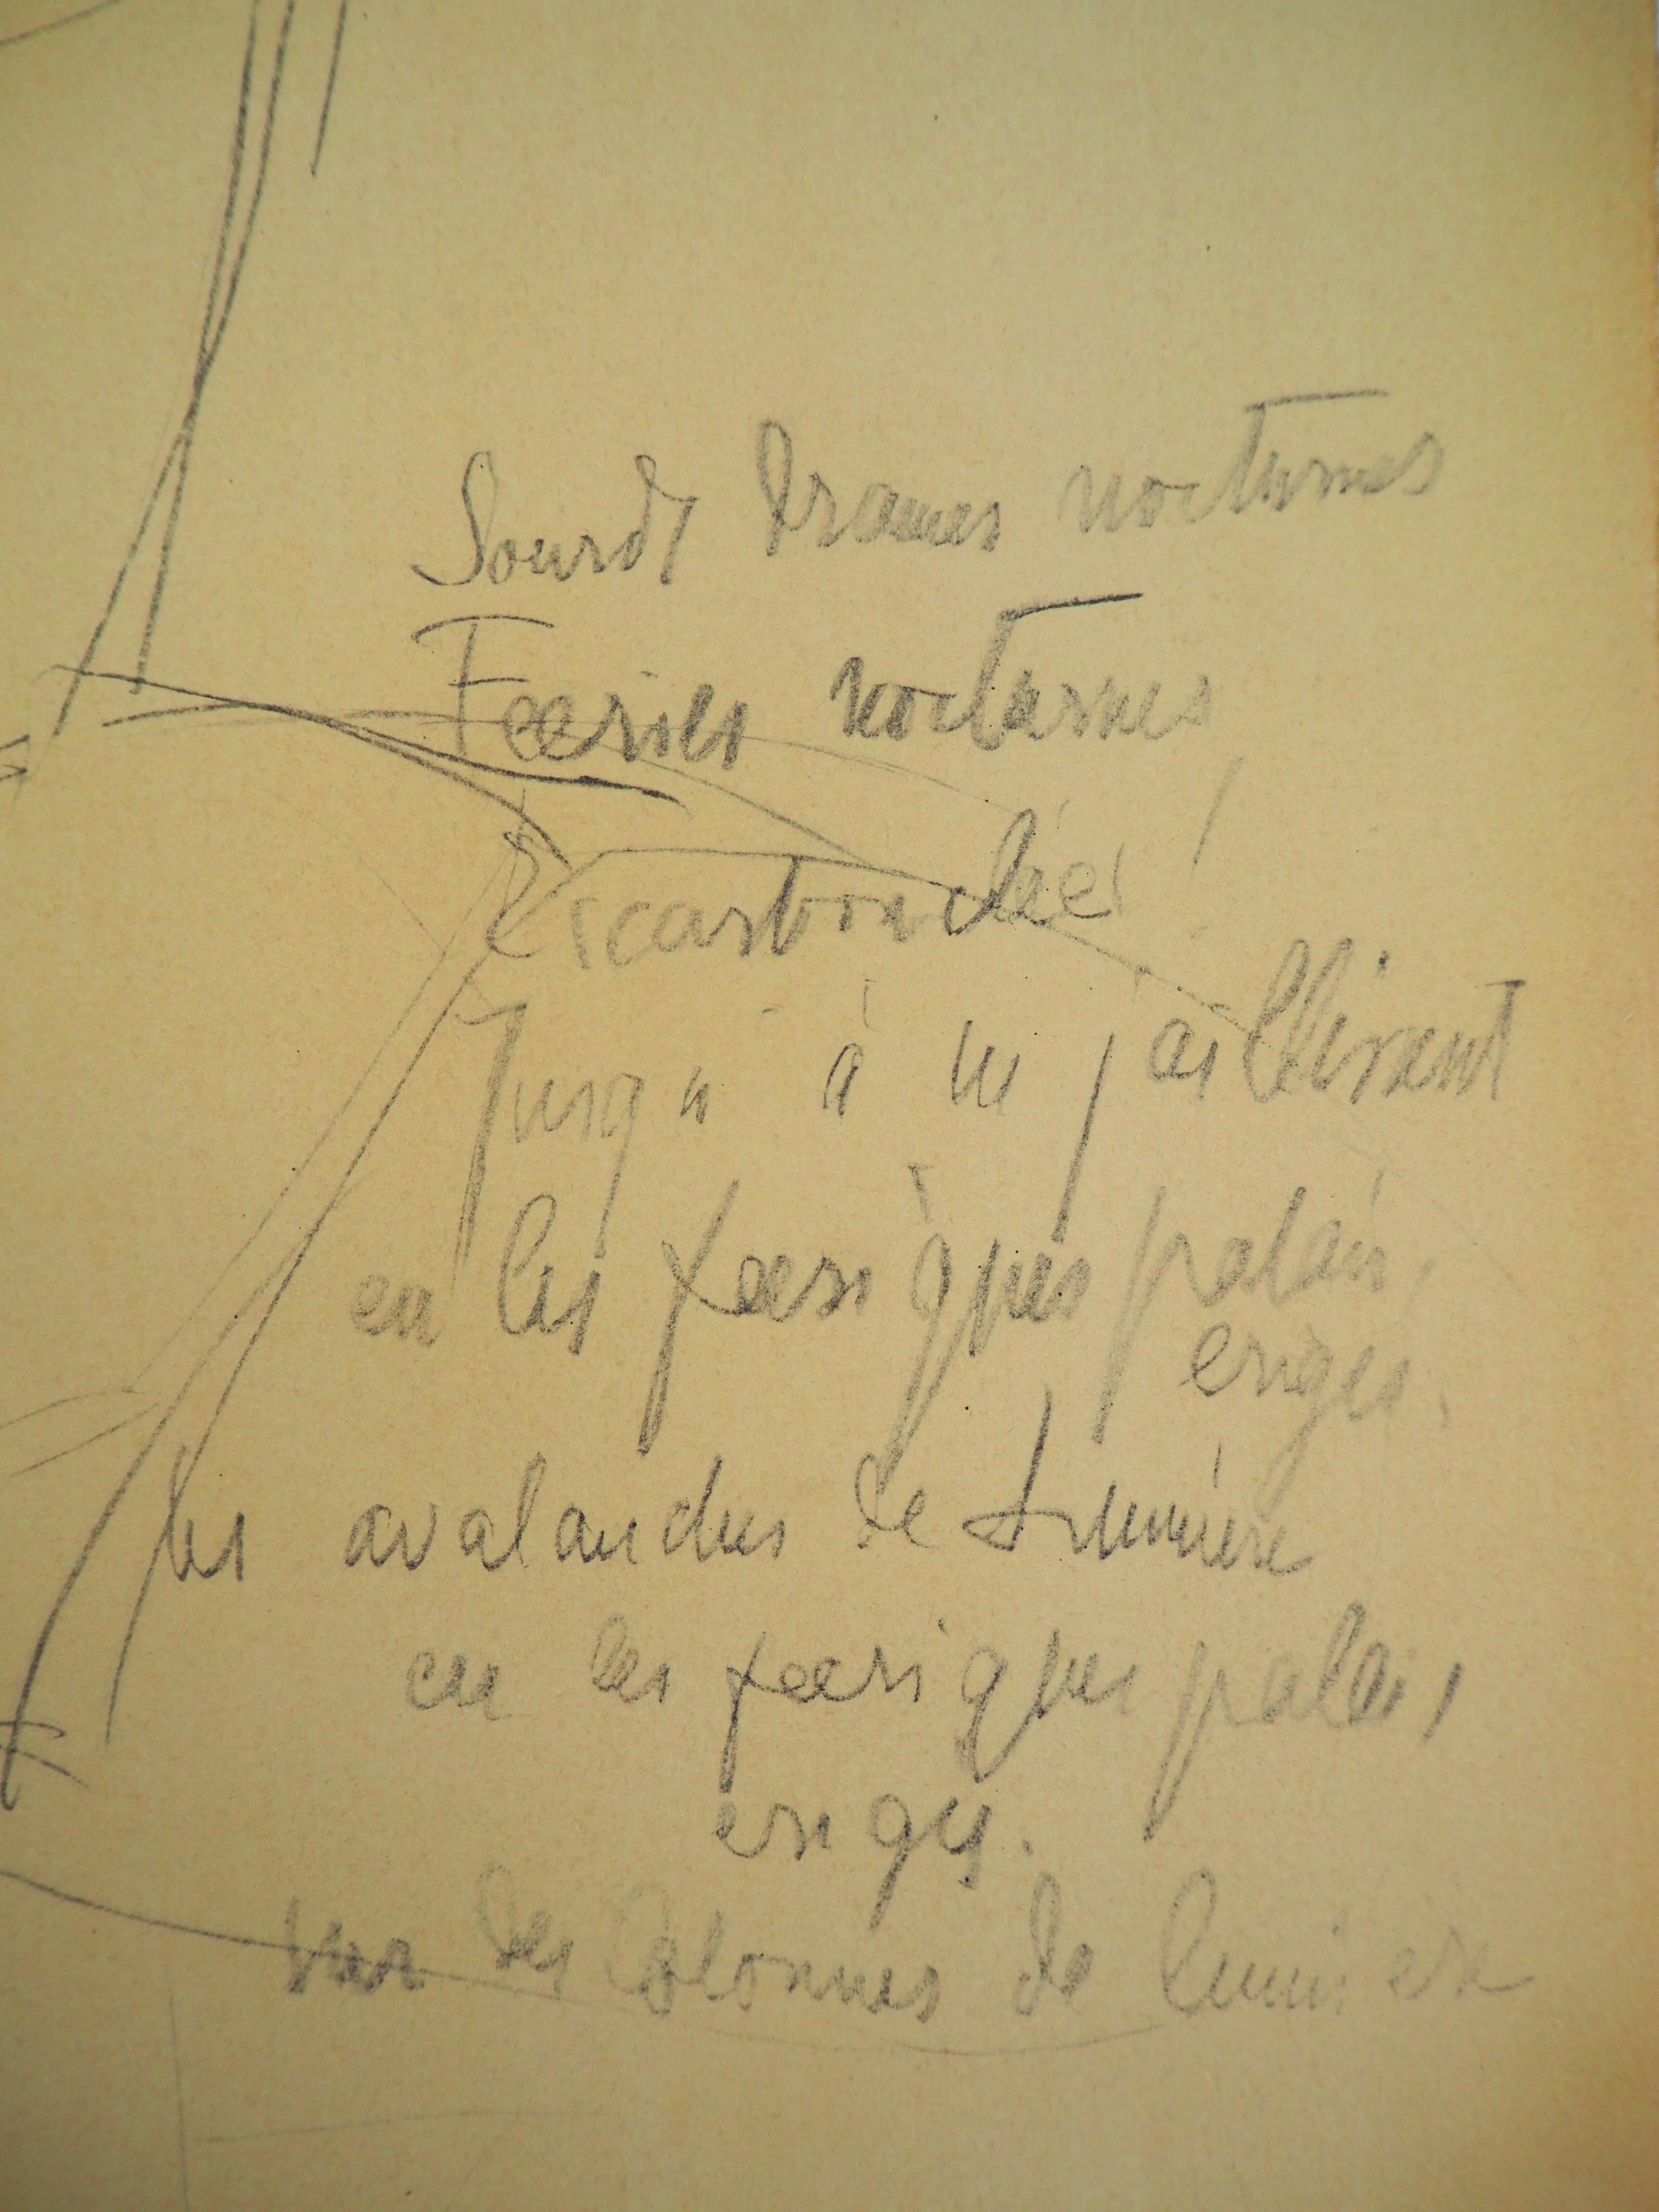 Sourds Drames nocturnes
Feeries nocturnes
Escarbouclées!
Jusqu'à
en les feeriques palais
eriges.
les avalanches de Lumière
en les feeriques palais
eriges.
sur des Colonnes de lumiere